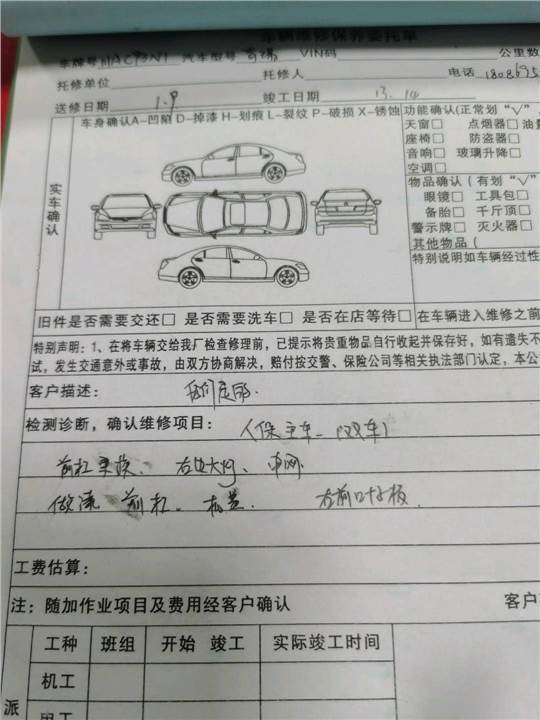 车辆维修保养委托单
车牌号 汽车型号 奇瑞 VIN码 公里数
托修单位 托修人 电话 1808695
送修日期 1.9 竣工日期 13.14
车身确认A-凹陷 D-掉漆 H-划痕 L-裂纹 P-破损 X-锈蚀 功能确认(正常划“√”
天窗□ 点烟器□ 油量
座椅□ 防盗器□
音响□ 玻璃升降□
空调□
实车确认
物品确认(有划“√”
眼镜□ 工具包□
备胎□ 千斤顶□
警示牌□ 灭火器□
其他物品(
特别说明如车辆经过性
旧件是否需要交还□ 是否需要洗车□ 是否在店等待□ 在车辆进入维修之前
特别声明：1、在将车辆交给我厂检查修理前，已提示将贵重物品自行收起并保存好，如有遗失不
试，发生交通意外或事故，由双方协商解决，赔付按交警、保险公司等相关执法部门认定，本公
客户描述：
检测诊断，确认维修项目： 人保 主车 (双车)
前杠 右边大灯、中网
做漆 前杠、机盖 右前叶子板
工费估算：
注：随加作业项目及费用经客户确认 客户
工种 班组 开始 竣工 实际竣工时间
机工
派 电工